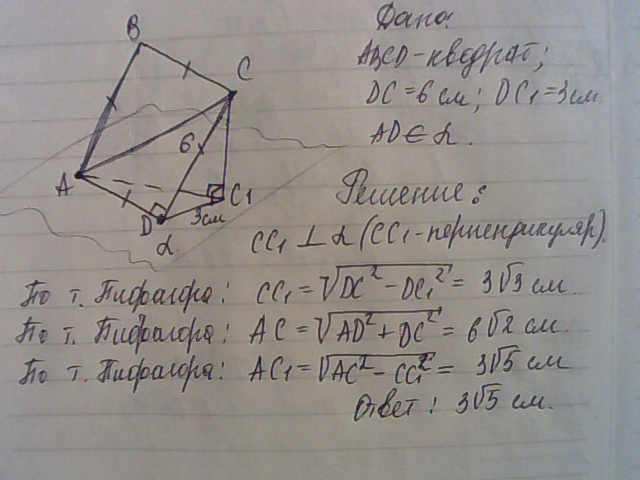 Дано:
ABCD-квадрат;
DC=6 см; DC1=3 см
AD∈α.
B
C
6
A
C1
D
3см
α
Решение:
CC1 ⊥ α (CC1-перпендикуляр).
По т. Пифагора: CC1 = √DC² - DC1² = 3√3 см.
По т. Пифагора: AC = √AD² + DC² = 6√2 см.
По т. Пифагора: AC1 = √AC² - CC1² = 3√5 см
Ответ: 3√5 см.